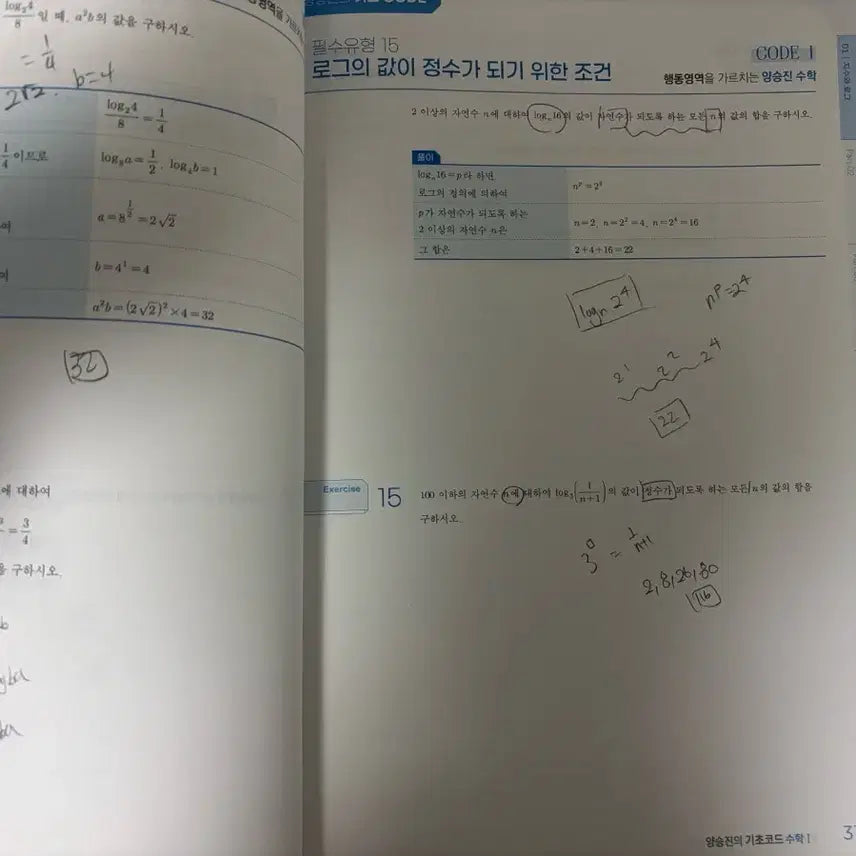 log₂4/8 일 때, a²b의 값을 구하시오.
= 1/4
2√2 . b=4
log₂4/8 = 1/4
1/4 이므로
log₈a = 1/2, log₄b = 1
a = 8^(1/2) = 2√2
b = 4¹ = 4
a²b = (2√2)² × 4 = 32
32
에 대하여
= 3/4
을 구하시오.
기초 CODE
필수유형 15
CODE 1
로그의 값이 정수가 되기 위한 조건
행동영역을 가르치는 양승진 수학
2 이상의 자연수 n에 대하여 logₙ16의 값이 자연수가 되도록 하는 모든 n의 값의 합을 구하시오.
풀이
logₙ16=p라 하면
로그의 정의에 의하여
nᵖ=2⁴
p가 자연수가 되도록 하는
2 이상의 자연수 n은
n=2, n=2²=4, n=2⁴=16
그 합은
2+4+16=22
logₙ 2⁴
nᵖ=2⁴
2¹ 2² 2⁴
22
Exercise
15
100 이하의 자연수 n에 대하여 log₃(1/(n+1))의 값이 정수가 되도록 하는 모든 n의 값의 합을
구하시오.
= 1/n+1
2,8,26,80
116
양승진의 기초코드 수학 I
01 | 지수와 로그